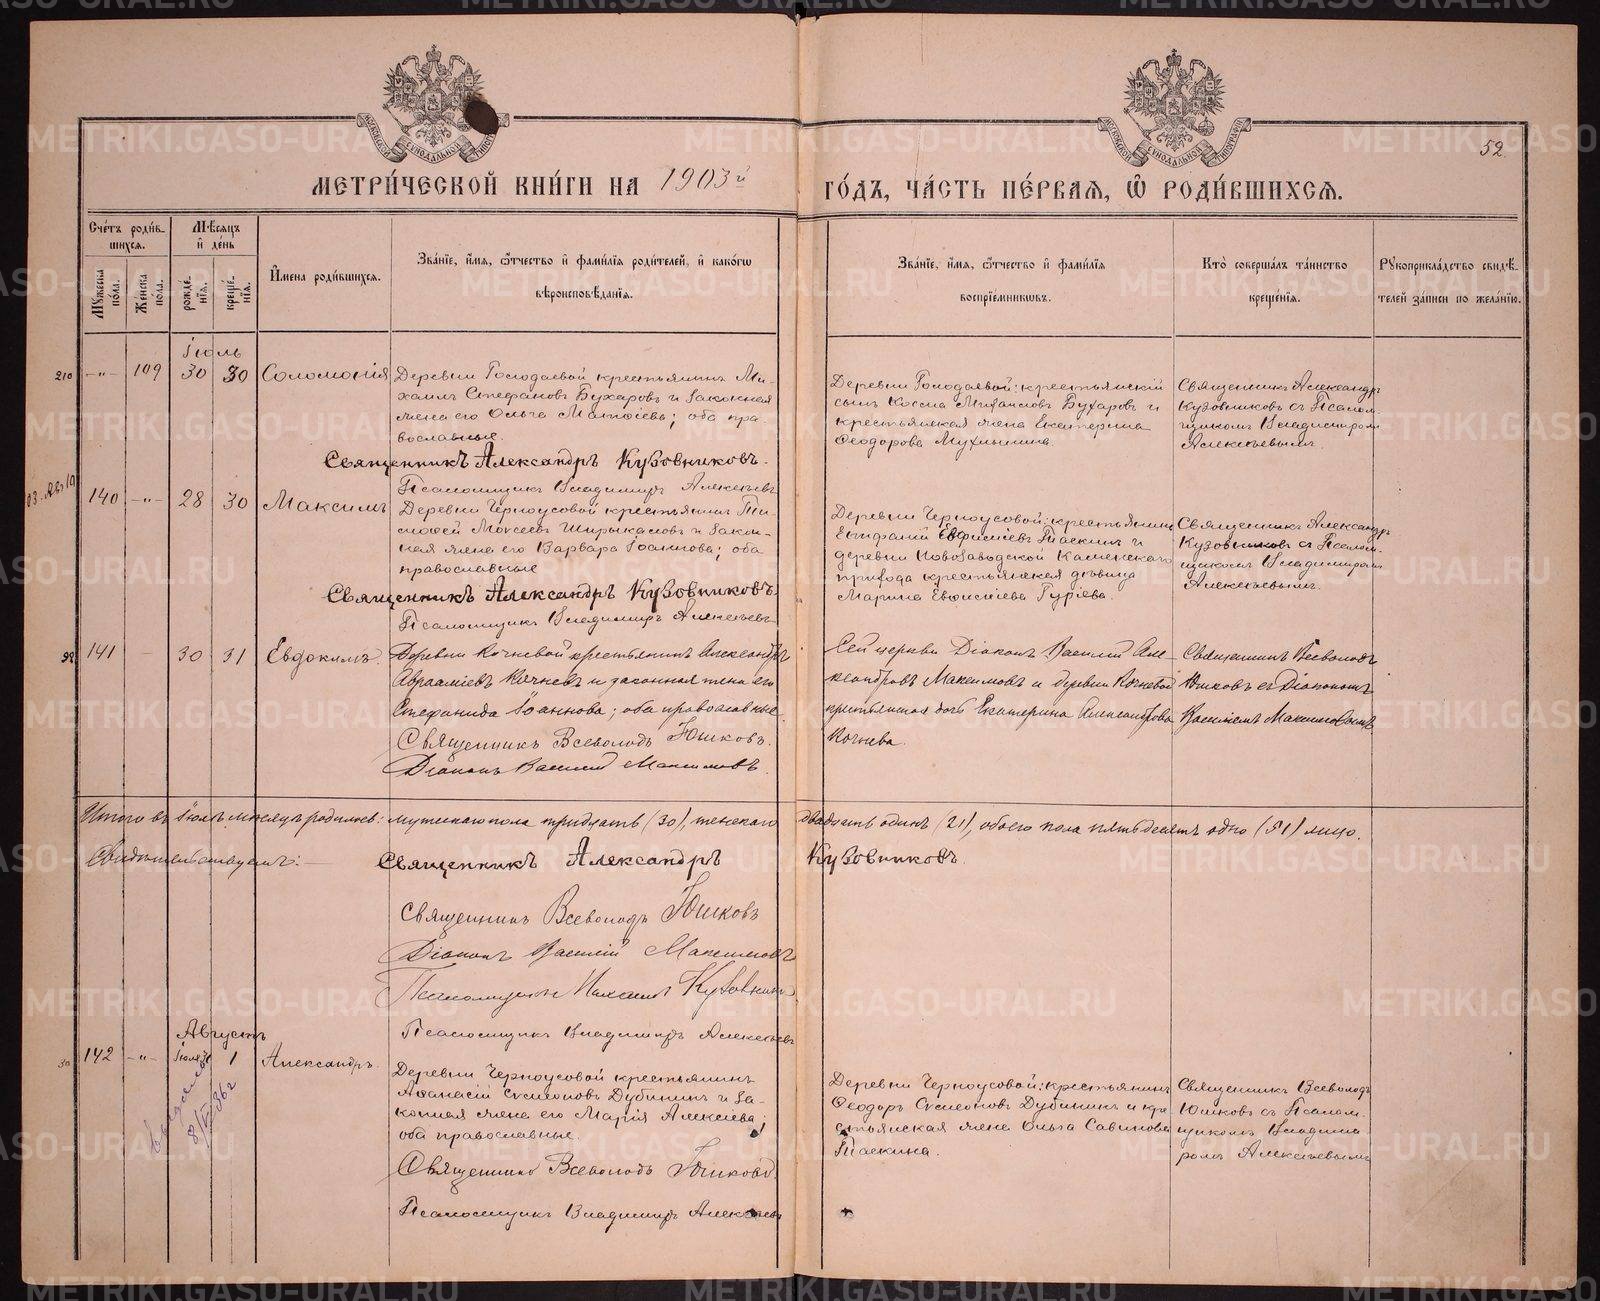 52
МЕТРИ́ЧЕСКОЙ КНИ́ГИ НА 1903й ГО́ДЪ, ЧА́СТЬ ПЕ́РВАЯ, Ѡ РОДИ́ВШИХСЯ.
Сче́тъ роди́в-
шихся.
Мѣ́сяцъ
и де́нь
Му́жеска по́ла.
Же́нска пола.
рожде́-
нїя.
креще́-
нїя.
И́мена роди́вшихся.
Зва́нїе, и́мя, ѻ́тчество и фами́лїя роди́телей, и како́гѡ
вѣроисповѣ́данїя.
Зва́нїе, и́мя, ѻ́тчество и фами́лїя
воспрїе́мникѡвъ.
Кто̀ соверша́лъ та́инство
креще́нїя.
Рукоприкла́дство свидѣ́-
телей за́писи по жела́нїю.
Іюль
210 -„- 109 30 30 Соломонія
Деревни Голодаевой крестьянинъ Ми-
хаилъ Стефановъ Бухаровъ и законная
жена его Ольга Матѳіева; оба пра-
вославные.
Священникъ Александръ Кузовниковъ.
Псаломщикъ Владимиръ Алексѣевъ
Деревни Голодаевой: крестьянскій
сынъ Косма Михаиловъ Бухаровъ и
крестьянская жена Екатерина
Ѳеодорова Мухлынина.
Священникъ Александръ
Кузовниковъ съ Псалом-
щикомъ Владимиромъ
Алексѣевымъ.
140 -„- 28 30 Максимъ
Деревни Черноусовой крестьянинъ Ти-
моѳей Моѵсеевъ Ширыкаловъ и закон-
ная жена его Варвара Іоаннова; оба
православные
Священникъ Александръ Кузовниковъ.
Псаломщикъ Владимиръ Алексѣевъ
Деревни Черноусовой: крестьянинъ
Епифаній Таскинъ и
деревни Новозаводской Каменскаго
прихода крестьянская дѣвица
Марина Гуріева.
Священникъ Александръ
Кузовниковъ съ Псалом-
щикомъ Владимиромъ
Алексѣевымъ.
141 - 30 31 Евдокимъ.
Деревни Кочневой крестьянинъ Александръ
Авраамiевъ Кочневъ и законная жена его
Стефанида Іоаннова; оба православные.
Священникъ Всеволодъ Юшковъ.
Діаконъ Василій Максимовъ.
Сей церкви Діаконъ Василій Але-
ксандровъ Максимовъ и деревни Кочневой
крестьянская дочь Екатерина Александрова
Кочнева.
Священникъ Всеволодъ
Юшковъ съ Діакономъ
Василіемъ Максимовымъ
Итого въ Іюлѣ мѣсяцѣ родилось: мужескаго пола тридцать (30), женскаго двадцать одинъ (21), обоего пола пятьдесятъ одно (51) лицо.
Свидѣтельствуемъ:
Священникъ Александръ Кузовниковъ.
Священникъ Всеволодъ Юшковъ
Діаконъ Василій Максимовъ
Псаломщикъ Михаилъ
Псаломщикъ Владимиръ Алексѣевъ
Августъ
142 -„- Іюля 31 1 Александръ.
Деревни Черноусовой крестьянинъ
Аѳанасій Сѵмеоновъ Дубининъ и за-
конная жена его Марія Алексіева;
оба православные.
Священникъ Всеволодъ Юшковъ
Псаломщикъ Владимиръ Алексѣевъ
Деревни Черноусовой: крестьянинъ
Ѳеодоръ Сѵмеоновъ Дубининъ и кре-
стьянская жена Ольга Савинова
Таскина.
Священникъ Всеволодъ
Юшковъ съ Псалом-
щикомъ Владими-
ромъ Алексѣевымъ
METRIKI.GASO-URAL.RU